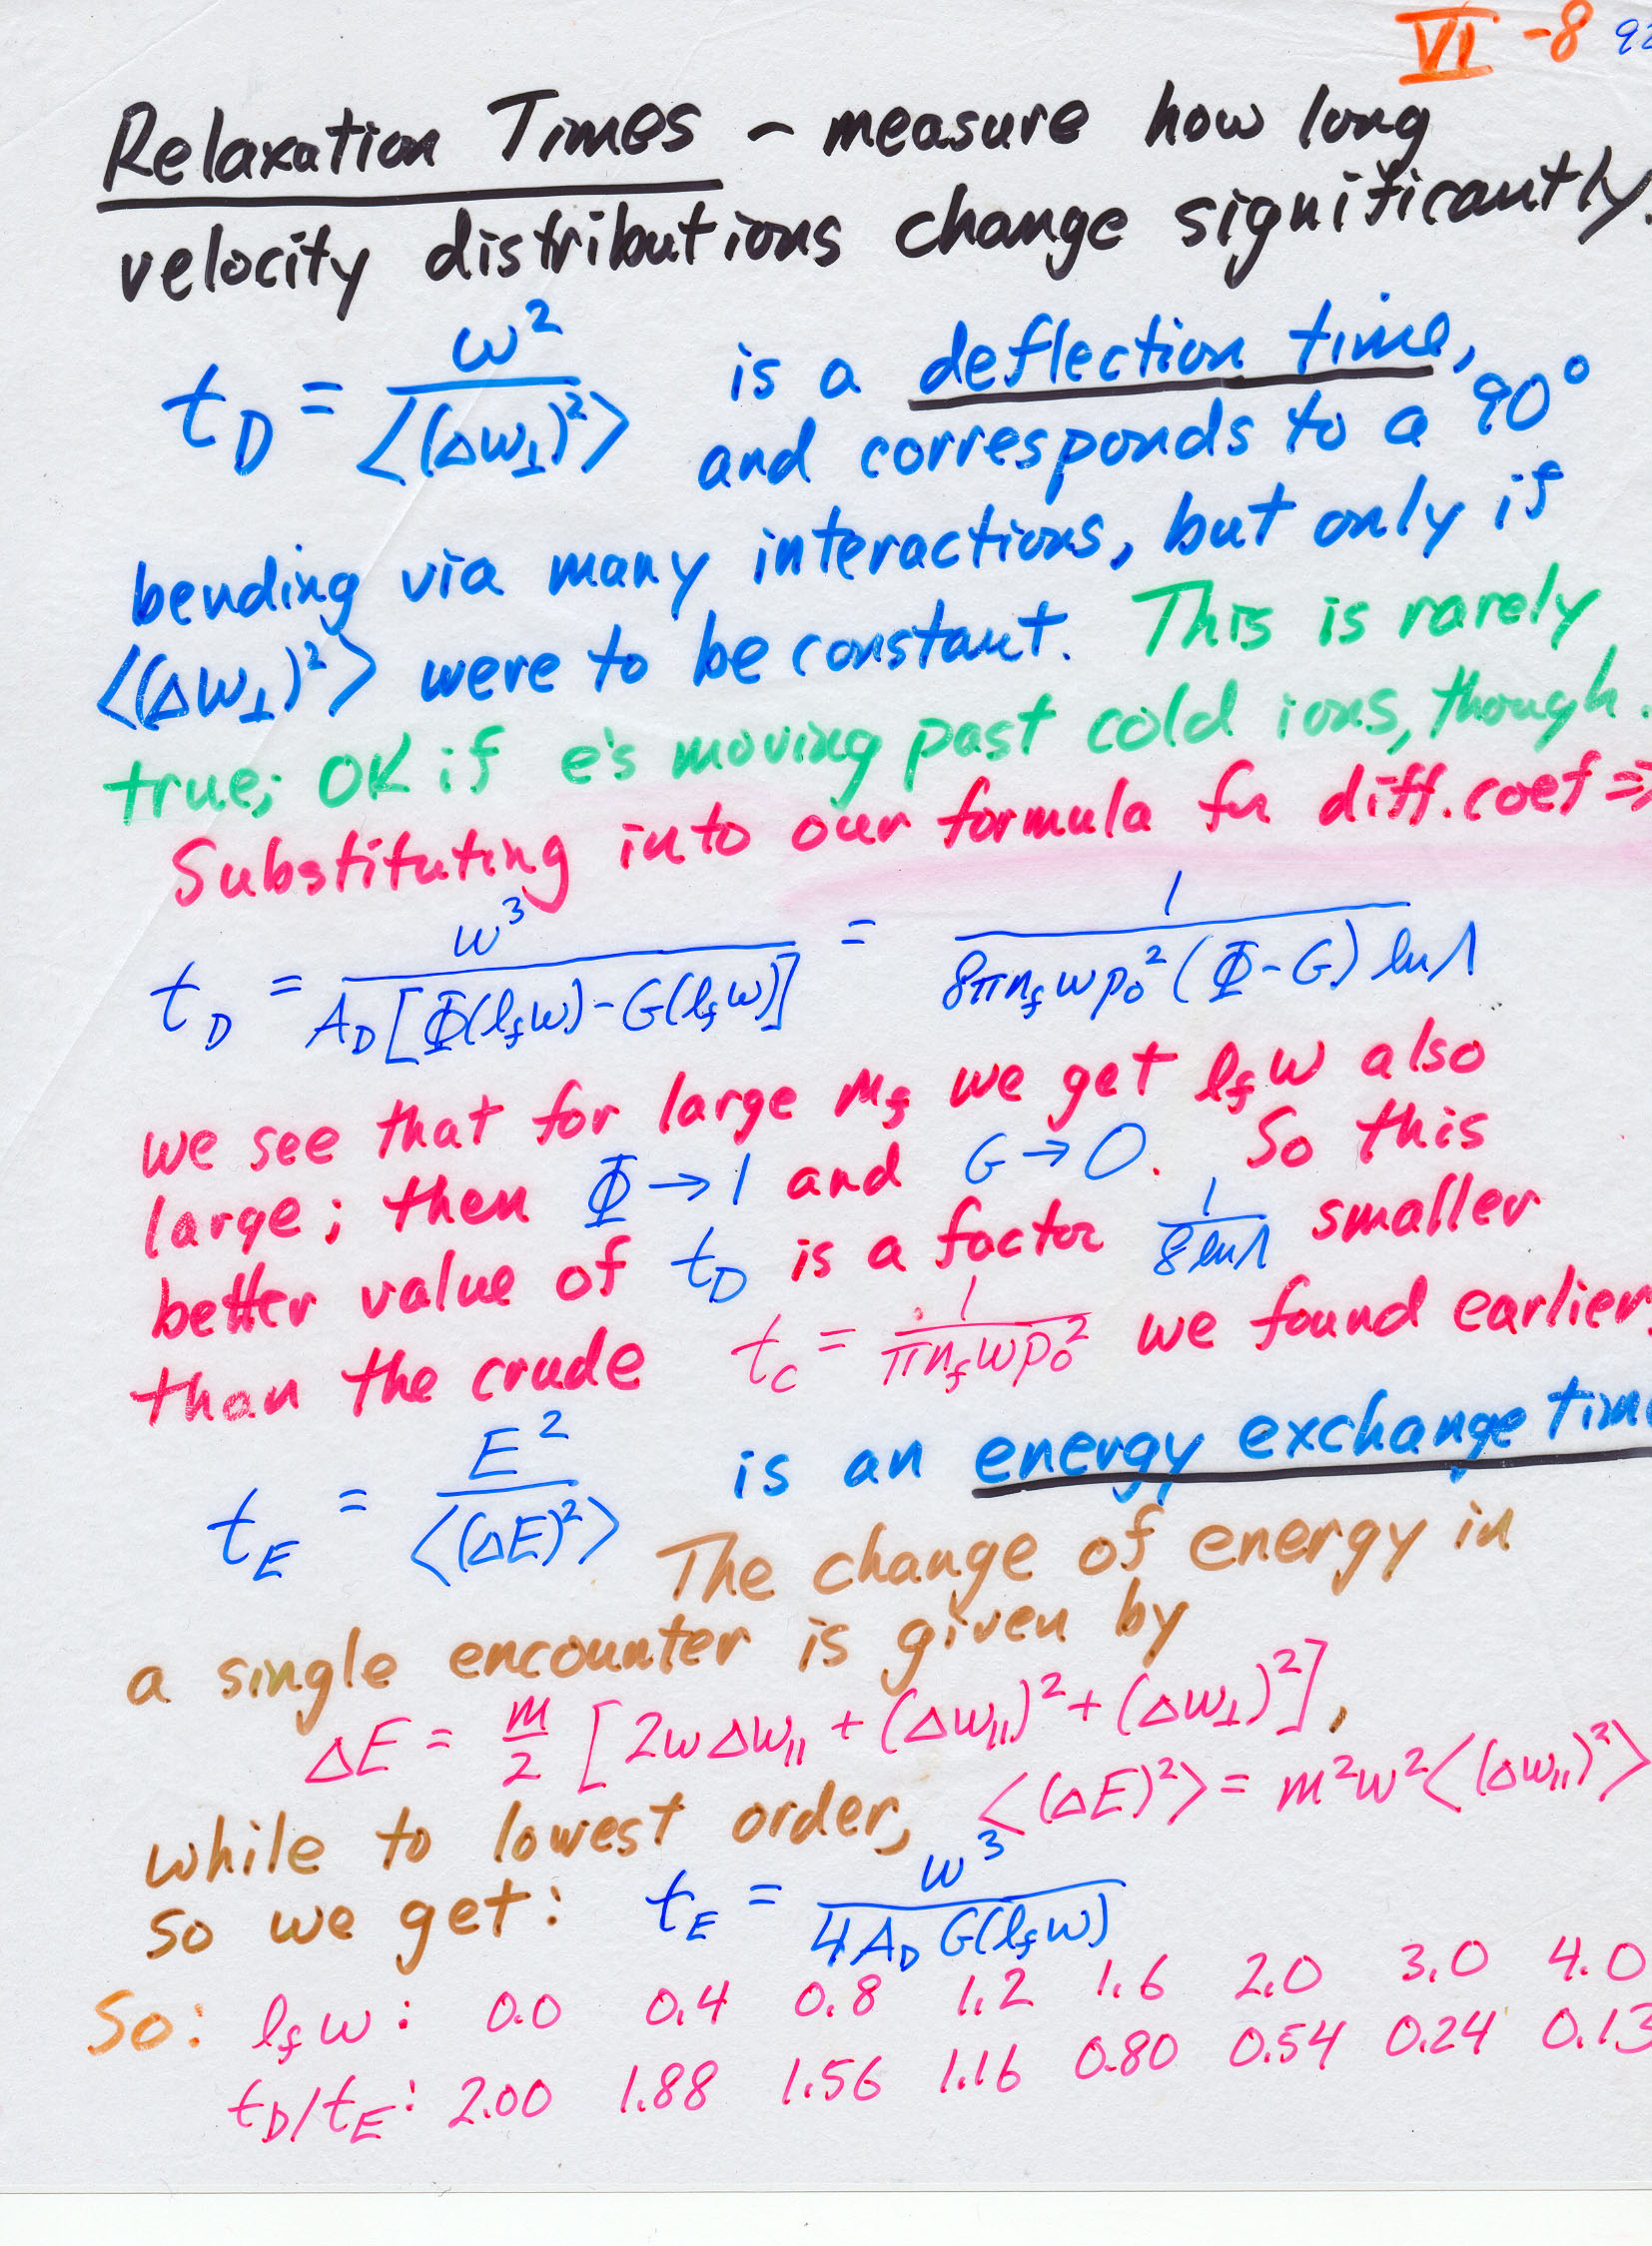 VI -8 92
Relaxation Times - measure how long
velocity distributions change significantly.
t_D = w² / <(Δw⊥)²> is a deflection time,
and corresponds to a 90°
bending via many interactions, but only if
<(Δw⊥)²> were to be constant. This is rarely
true; OK if e's moving past cold ions, though.
Substituting into our formula for diff. coef ⇒
t_D = w³ / A_D [Φ(l_f w) - G(l_f w)] = 1 / 8πn_f w p₀² (Φ - G) ln Λ
we see that for large m_f we get l_f w also
large; then Φ → 1 and G → 0. So this
better value of t_D is a factor 1 / 8 ln Λ smaller
than the crude t_c = 1 / πn_f w p₀² we found earlier.
t_E = E² / <(ΔE)²> is an energy exchange time
The change of energy in
a single encounter is given by
ΔE = m/2 [2wΔw∥ + (Δw∥)² + (Δw⊥)²],
while to lowest order, <(ΔE)²> = m²w²<(Δw∥)²>
so we get: t_E = w³ / 4 A_D G(l_f w)
So: l_f w: 0.0 0.4 0.8 1.2 1.6 2.0 3.0 4.0
t_D/t_E: 2.00 1.88 1.56 1.16 0.80 0.54 0.24 0.13